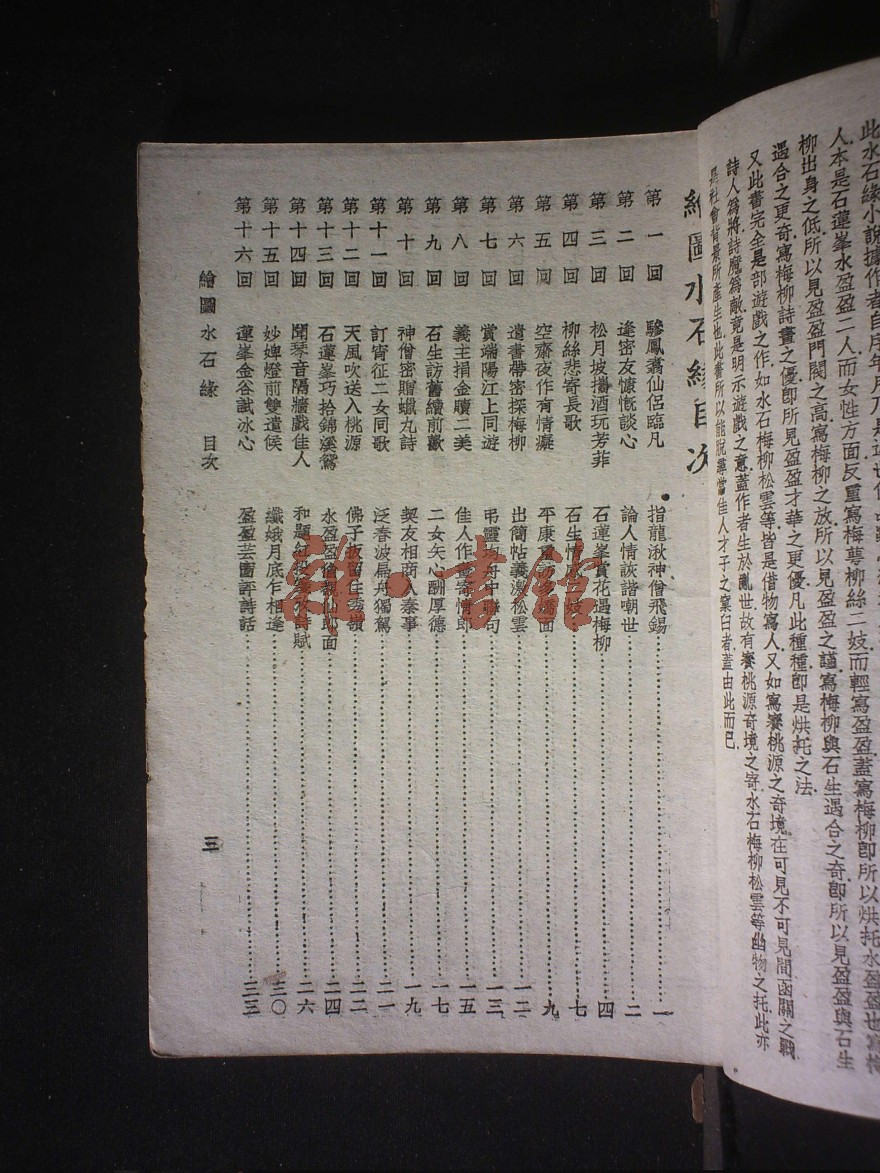 此水石緣小說據作者自序年月乃是
人本是石蓮峯水盈盈二人而女性方面反重寫梅萼柳絲二妓而輕寫盈盈蓋寫梅柳卽所以烘托水盈盈也寫梅
柳出身之低所以見盈盈門閥之高寫梅柳之放所以見盈盈之謹寫梅柳與石生遇合之奇卽所以見盈盈與石生
遇合之更奇寫梅柳詩畫之優卽所見盈盈才華之更優凡此種種卽是烘托之法
又此書完全是部遊戲之作如水石梅柳松雲等皆是借物寫人又如寫賽桃源之奇境在可見不可見間函關之戰
詩人爲將詩魔爲敵竟是明示遊戲之意蓋作者生於亂世故有賽桃源奇境之寄水石梅柳松雲等幽物之托此亦
是社會背景所產生也此書所以能脫尋常佳人才子之窠臼者蓋由此而已
繪圖水石緣目次
第一回 驂鳳翥仙侶臨凡 指龍湫神僧飛錫 一
第二回 逢密友慷慨談心 論人情詼諧嘲世 二
第三回 松月坡攜酒玩芳菲 石蓮峯賞花遇梅柳 四
第四回 柳絲悲寄長歌 石生情 妓 七
第五回 空齋夜作有情癡 平康 訪 面 九
第六回 遺書帶密探梅柳 出簡帖義激松雲 一二
第七回 賞端陽江上同遊 弔靈 舟中聯句 一三
第八回 義主捐金贖二美 佳人作畫寄情郎 一五
第九回 石生訪舊續前歡 二女矢心酬厚德 一七
第十回 神僧密贈蠟丸詩 契友相商入泰事 一九
第十一回 訂宵征二女同歌 泛春波扁舟獨駕 二一
第十二回 天風吹送入桃源 佛子扳留住 嶺 二二
第十三回 石蓮峯巧拾錦溪鴛 水盈盈偷覷仙郎面 二四
第十四回 聞琴音隔牆戲佳人 和題紅投 詩賦 二六
第十五回 妙婢燈前雙遣侯 纖娥月底乍相逢 三〇
第十六回 蓮峯金谷試冰心 盈盈芸窗評詩話 三三
繪圖水石緣 目次
三